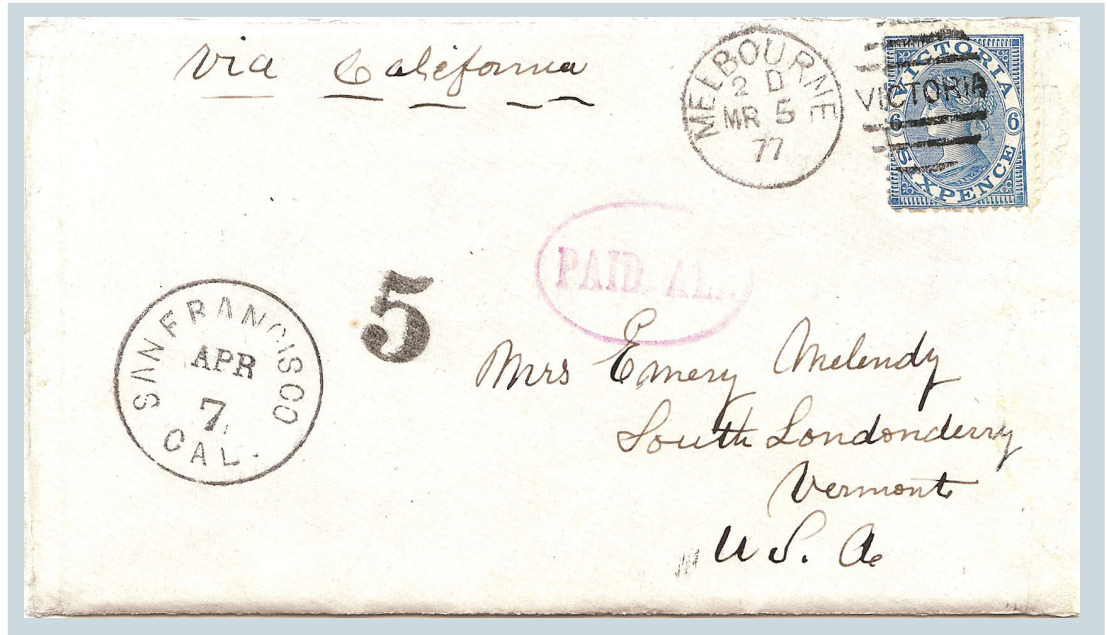 via California
MELBOURNE
2 D
MR 5
77
VICTORIA
VICTORIA
6 6
SIXPENCE
PAID ALL
5
SAN FRANCISCO
APR
7
CAL.
Mrs Emery Melendy
South Londonderry
Vermont
U.S.A